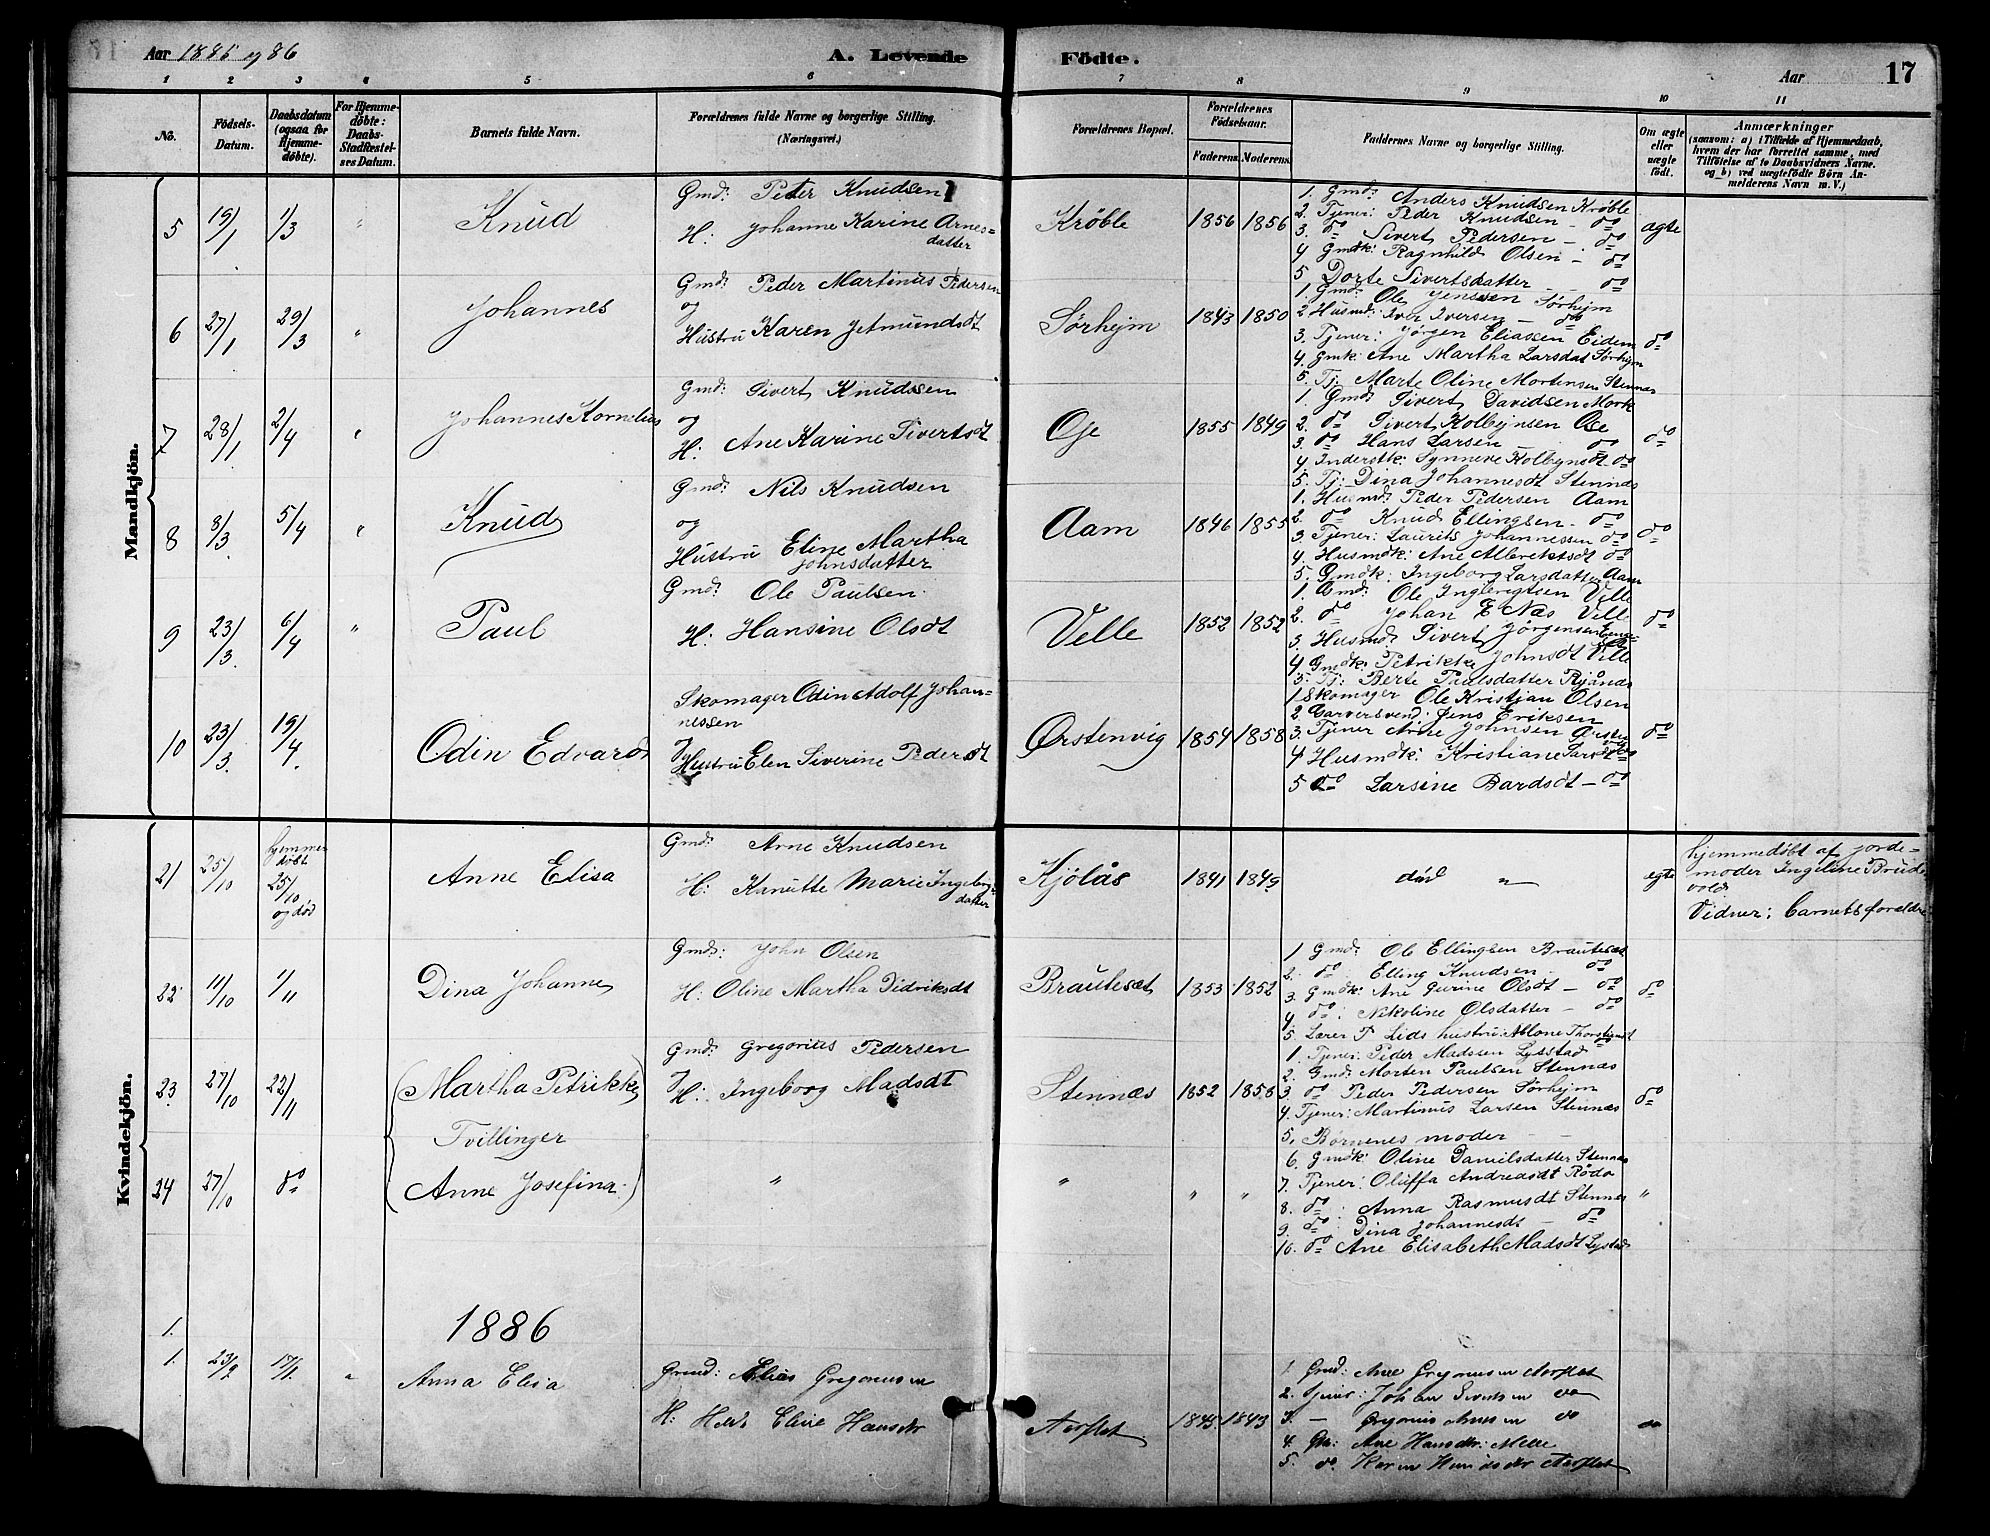 Aar 1885 og 86
A. Levende Födte.
Aar 17
1 2 3 4 5 6 7 8 9 10 11
No.
Födsels-Datum.
Daabsdatum (ogsaa for Hjemme-döbte).
For Hjemme-döbte: Daabs-Stadfæstel-ses Datum.
Barnets fulde Navn.
Forældrenes fulde Navne og borgerlige Stilling. (Næringsvei.)
Forældrenes Bopæl.
Forældrenes Födselsaar.
Faderens. Moderens.
Faddernes Navne og borgerlige Stilling.
Om ægte eller uægte födt.
Anmærkninger
(saasom: a) i Tilfælde af Hjemmedaab, hvem der har forrettet samme, med Tilföielse af to Daabsvidners Navne. og b) ved uægtefödte Börn An-melderens Navn m. V.)
Mandkjön.
5 19/1 1/3 " Knud
Gmd: Peder Knudsen
H: Johanne Karine Arnes=
datter
Krøble 1856 1856
1. Gmd: Anders Knudsen Krøble
2. Tjener: Peder Knudsen - do
3. do Sivert Pedersen - do
4 Gmdk: Ragnhild Olsen - do
5 Dorte Sivertsdatter - - do
ægte
6 27/1 29/3 " Johannes
Gmd: Peder Martinus Pedersen
og
Hustru Karen Jetmundsdt
Sørhejm 1843 1850
1. Gmd: Ole Jenssen Sørhejm
2 Husmd: Iver Iversen - do
3. Tjener: Jørgen Eliassen Eidem
4. Gmk: Ane Martha Larsdat Sørhejm
5. Tj: Marte Oline Mortensen Stennæs
do
7 28/1 2/4 " Johannes Kornelius
Gmd: Sivert Knudsen
og
H: Ane Karine Sivertsdt
Øje 1855 1849
1. Gmd Sivert Davidsen Mork
2. do Sivert Kolbejnsen Øie
3. do Hans Larsen - do
4. Inderstk: Synneve Kolbejnsdt do
5. Tj: Dina Johannesdt Stennæs
do
8 8/3 5/4 " Knud
Gmd: Nils Knudsen
og
Hustru Eline Martha
Johnsdatter
Aam 1846 1855
1. Husmd: Peder Pedersen Aam
2. do Knud Ellingsen - do
3 Tjener: Laurits Johannessen do
4. Husmdk: Ane Albrektsdt do
5. Gmdk: Ingeborg Larsdatter Aam
do
9 23/3 6/4 " Paul
Gmd: Ole Paulsen
H: Hansine Olsdt
Velle 1852 1852
1. Gmd: Ole Ingebrigtsen Velle
2. do Johan E Næs Velle
3. Husmd: Sivert Jørgensen
4 Gmdk: Petrikke Johnsdt Velle
5. Tj: Berte Paulsdatter Rjånes
do
10 23/3. 19/4. Odin Edvard
Skomager Odin Adolf Johan=
nessen
Hustru Elen Siverine Pedersdt
Ørstenvig 1854 1858
1 Skomager Ole Kristian Olsen
2 Garversvend: Jens Eriksen
3. Tjener Arne Johnsen
4 Husmdk: Kristiane Larsdt
5 do Larsine Bardsdt - do
do
Kvindekjön.
21 25/10 hjemme
døbt
25/10
og død
Anne Elisa
Gmd: Arne Knudsen
H: Knutte Marie Ingebrigts
datter
Kjölås 1841 1849
død "
egte
hjemmedøbt af jorde=
moder Ingeline Brude
vold
Vidner: barnets foreldre
22 11/10 1/11 Dina Johanne
Gmd: John Olsen
H: Oline Martha Didriksdt
Brautesæt 1853 1852
1 Gmd: Ole Ellingsen Brautesæt
2. do Elling Knudsen - do
3. Gmdk: Ane Gurine Olsdt - do
4 do: Nikoline Olsdatter - do
5. Lærer P Lids hustru: Ablone
do
23 27/10 22/11 (Martha Petrikke)
Gmd: Gregorius Pedersen
H: Ingeborg Madsdt
Stennæs 1852 1858
Tvillinger
24 27/10 do (Anne Josefina)
" " " " "
1. Tjener: Peder Madssen Lystad
2. Gmd: Morten Paulsen Stennæs
3. do Peder Pedersen Sørhejm
4. Tjener: Martinus Larsen Stennæs
5. Børnenes moder - -
6. Gmdk: Oline Danielsdatter Stennæs
7. Tjener: Oluffa Andreasdt
8. do: Anna Rasmusdt Stennes
9. do: Dina Johannesdt - do
10. do Ane Elisabeth Madsdt Lystad
do
1886
1.
1. 23/2 " Anna Elisa
Grmd: Elias Gregoriusen
H: Eline Hansdtr
Aarflot 1845 1843
1. Grmd: Arne Gregoriusen Aarflot
2. Tjener: Johan Sivertsen do
3. - Gregorius do
4. Gm: Ane Hansdtr: Melle
5. do. Karen Aarflot
do